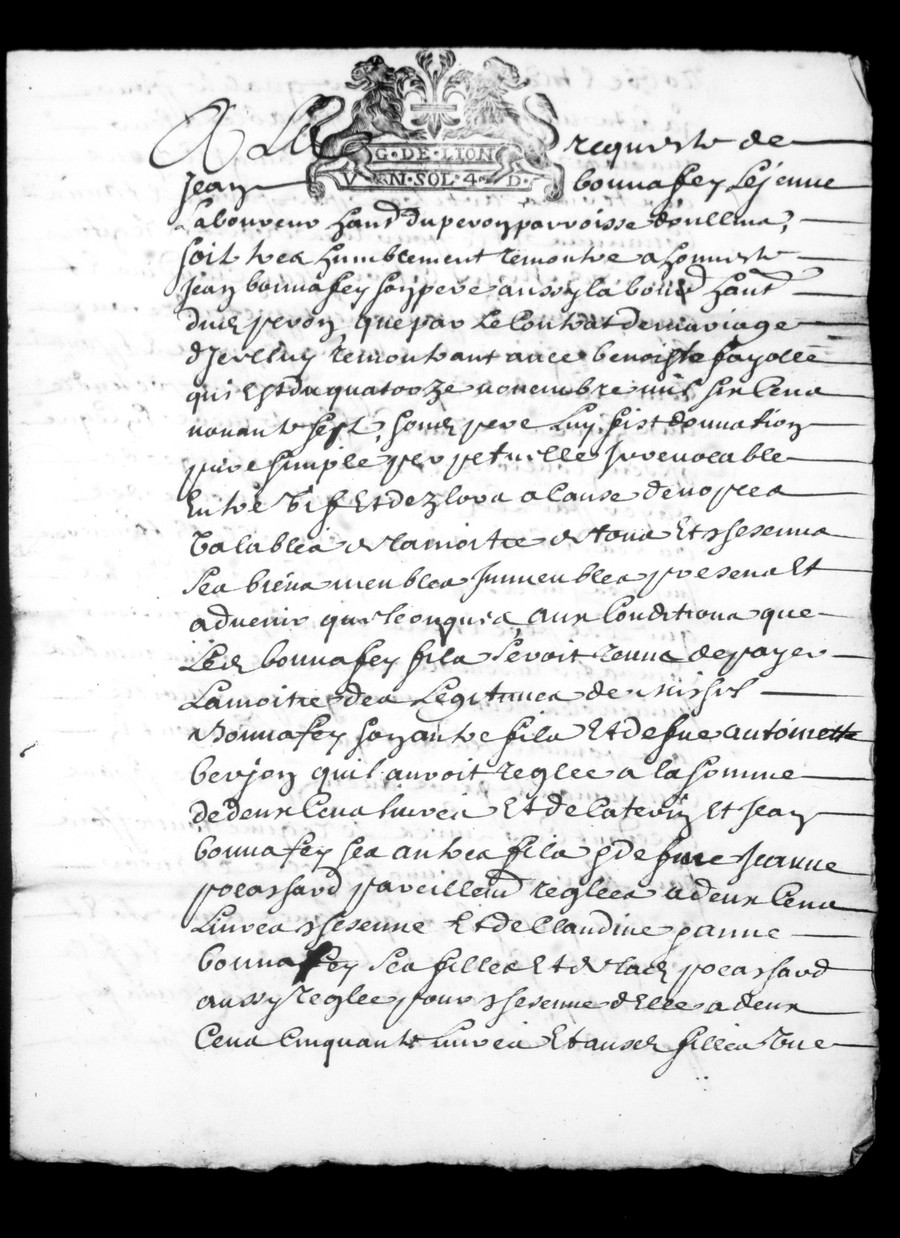 A La requeste de
G·DE·LION
VN·SOL·4·D·
Jean bonnafey Lejeune
Laboureur habt du peron parroisse doullins,
soit tres humblement remontre a honneste
Jean bonnafey son pere aussy labourr habt
dud peron que par Le Contrat de mariage
dremontrant avec benoiste fayolle
qui Est du quatorze novembre mil six Cens
nonante sept, sond pere Luy fist donnation
pure simple perpetuelle Irrevocable
Entre vif Et dez lors a Cause de nopces
valables de la moitie de tous Et chescuns
ses biens meubles Immeubles presens Et
advenir quelconques aux Conditions que
Led bonnafey fils seroit tenu de payer
La moitie des Legitimes de
Bonnafey son autre fils Et de fue antoinette
berjon quil auroit reglee a la somme
de deux Cens livres Et de Et Jean
bonnafey ses autres fils & de fue Jeanne
pocassard pareillemt reglees a deux Cens
Livres chescune Et de Claudine
bonnafey ses filles Et de lad pocassard
aussy reglee pour chescune delle a deux
Cens Cinquante livres Et ausd filles vne